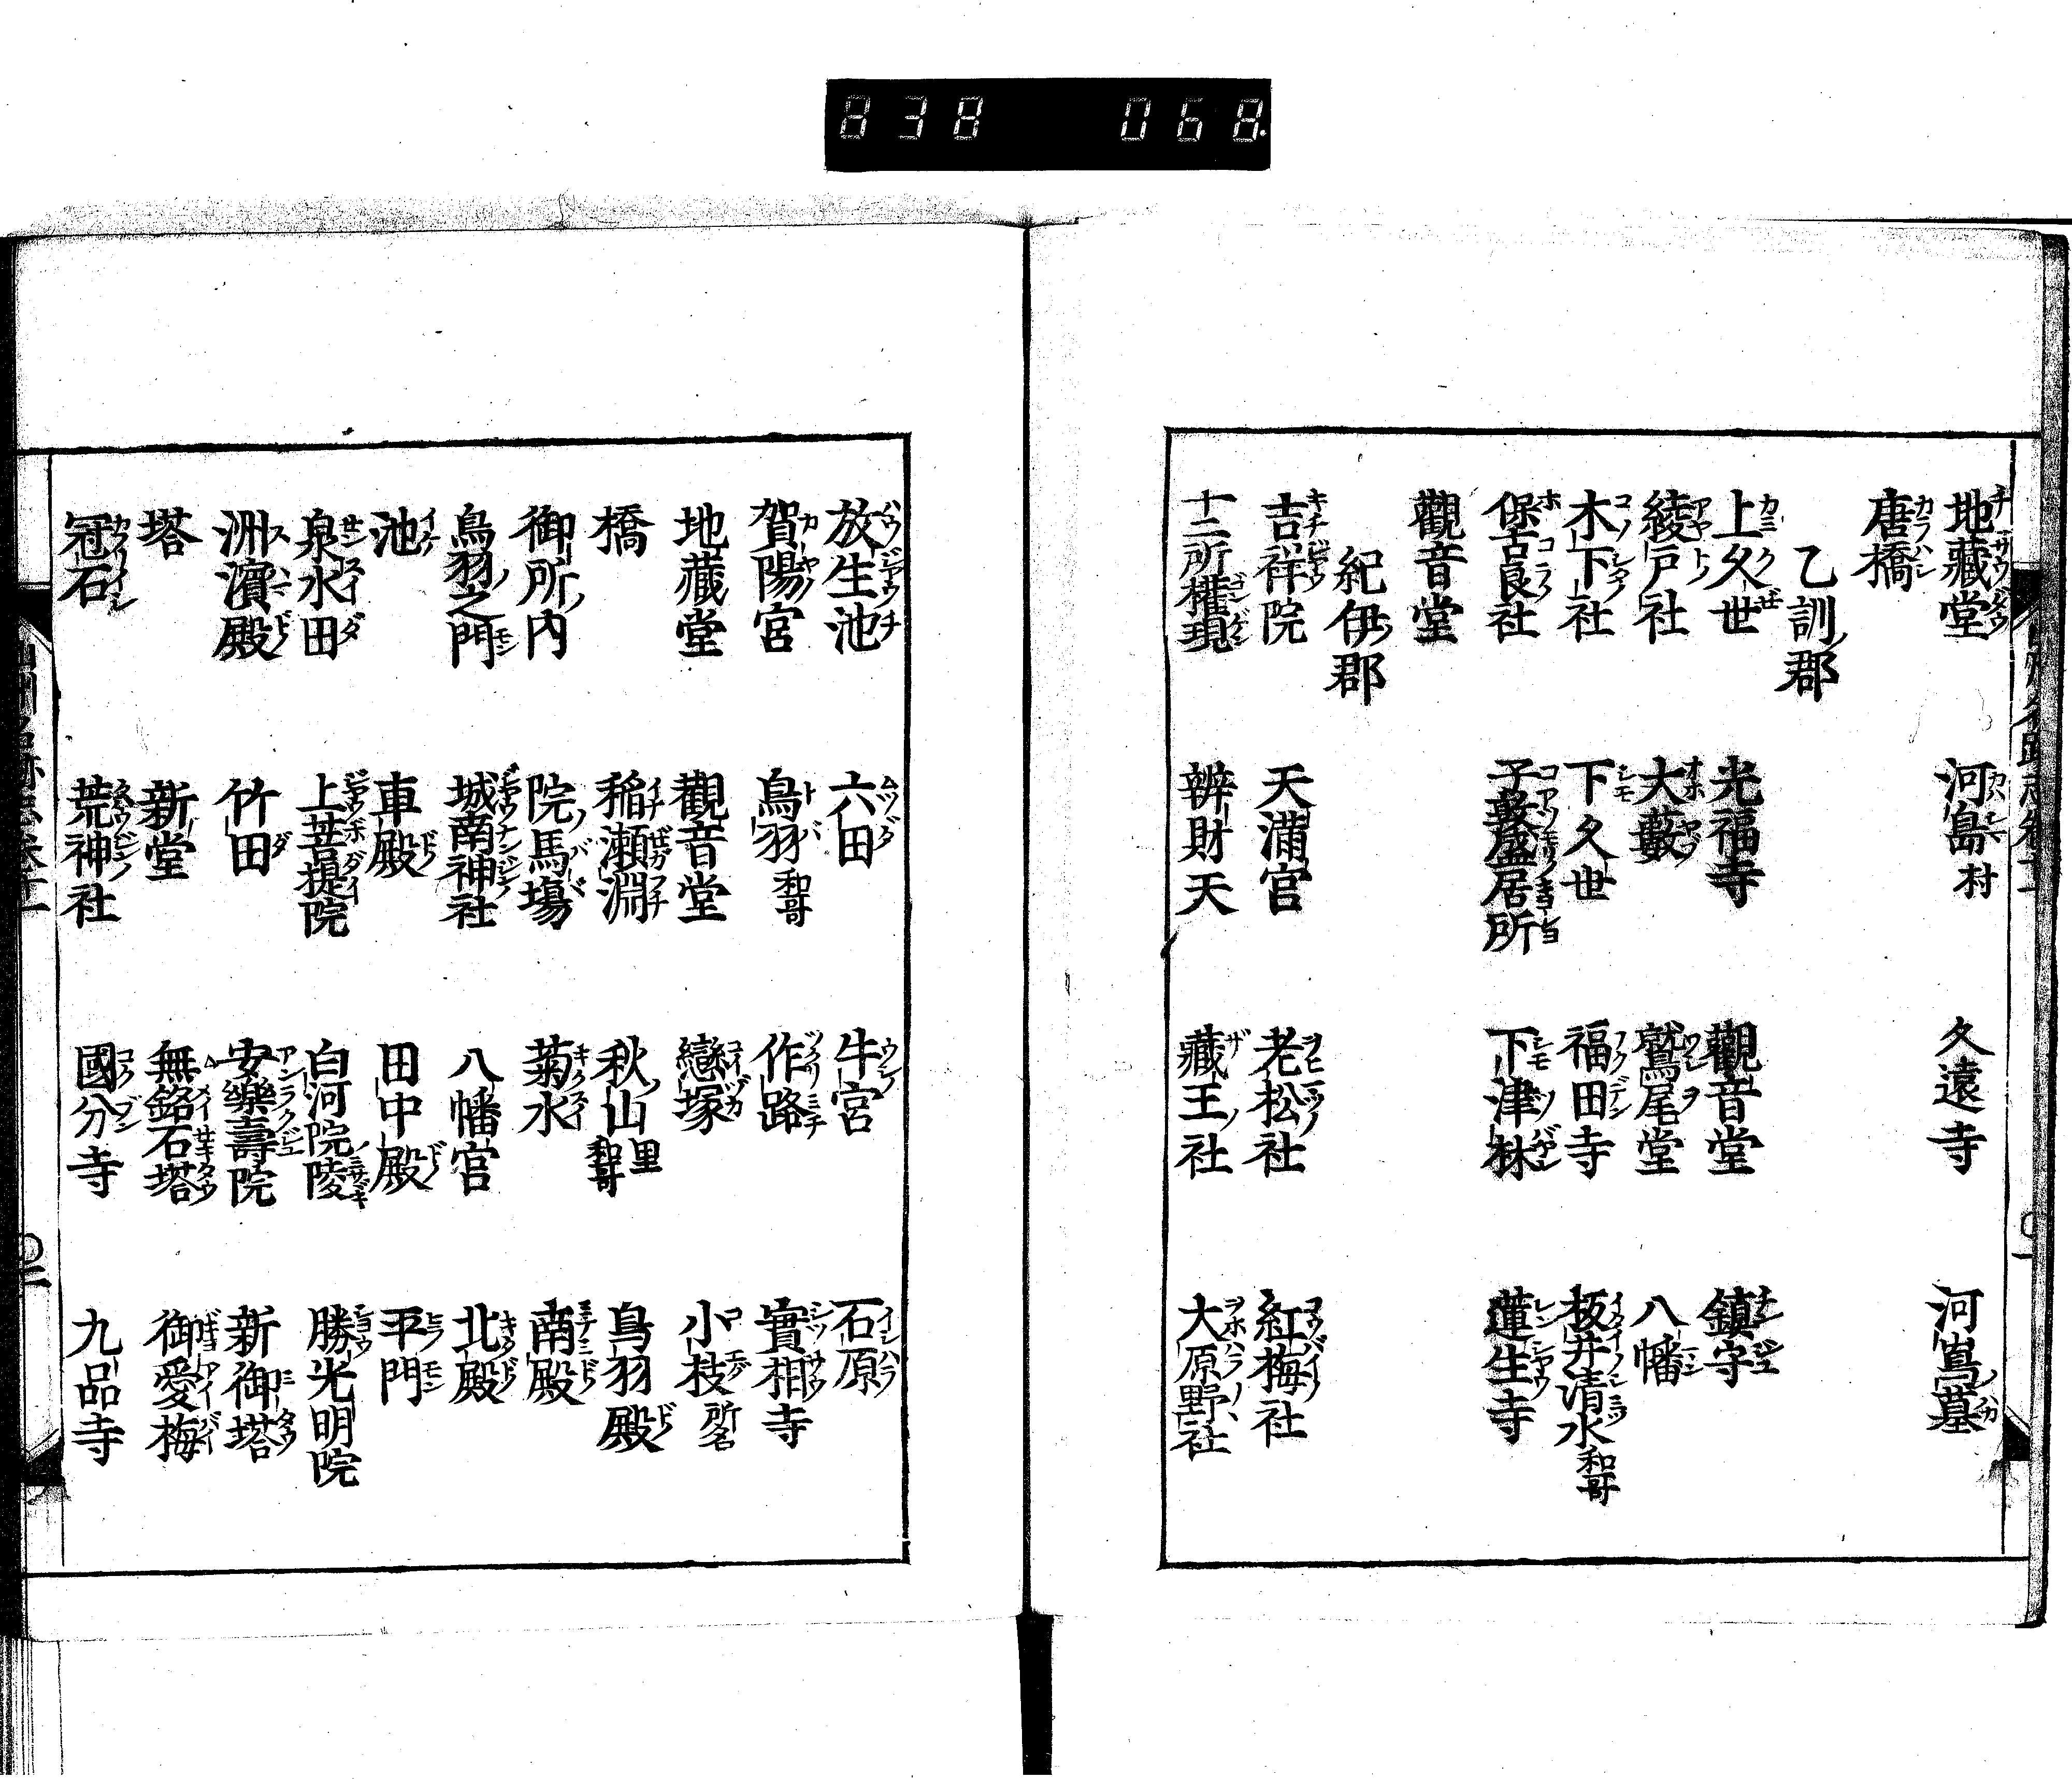 838 068.
地藏堂 河島村 久遠寺 河嶌墓
唐橋
乙訓郡
上久世 光福寺 觀音堂 鎮守
綾戸社 大藪 鷲尾堂 八幡
木下社 下久世 福田寺 板井清水 和哥
堡古良社 子藪盛居所 下津林 蓮生寺
觀音堂
紀伊郡
吉祥院 天滿宮 老松社 紅梅社
十二所權現 辨財天 藏王社 大原野社
放生池 六田 牛宮 石原
賀陽宮 鳥羽 和哥 作路 實相寺
地藏堂 觀音堂 戀塚 小枝 所名
橋 稲瀬淵 秋山里 和哥 鳥羽殿
御所内 院馬塲 菊水 南殿
鳥羽之門 城南神社 八幡宮 北殿
池 車殿 田中殿 平門
泉水田 上菩提院 白河院陵 勝光明院
洲濵殿 竹田 安樂壽院 新御塔
塔 新堂 無銘石塔 御愛梅
冠石 荒神社 國分寺 九品寺